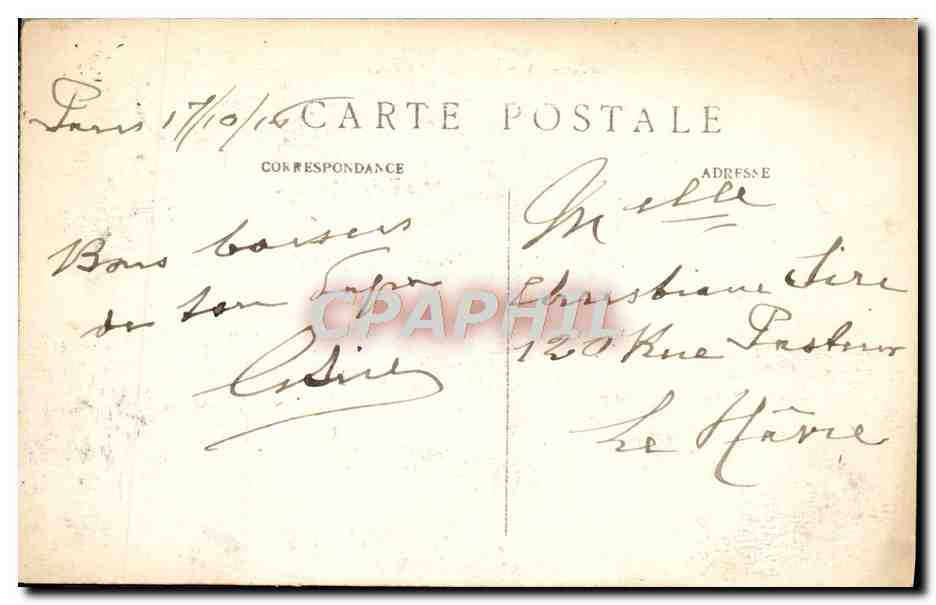 Paris 17/10/16
CARTE POSTALE
CORRESPONDANCE
ADRESSE
Bons baisers
de ton Papa
Sire
Melle
Christiane Sire
120 Rue Pasteur
Le Hâvre
CPAPHIL